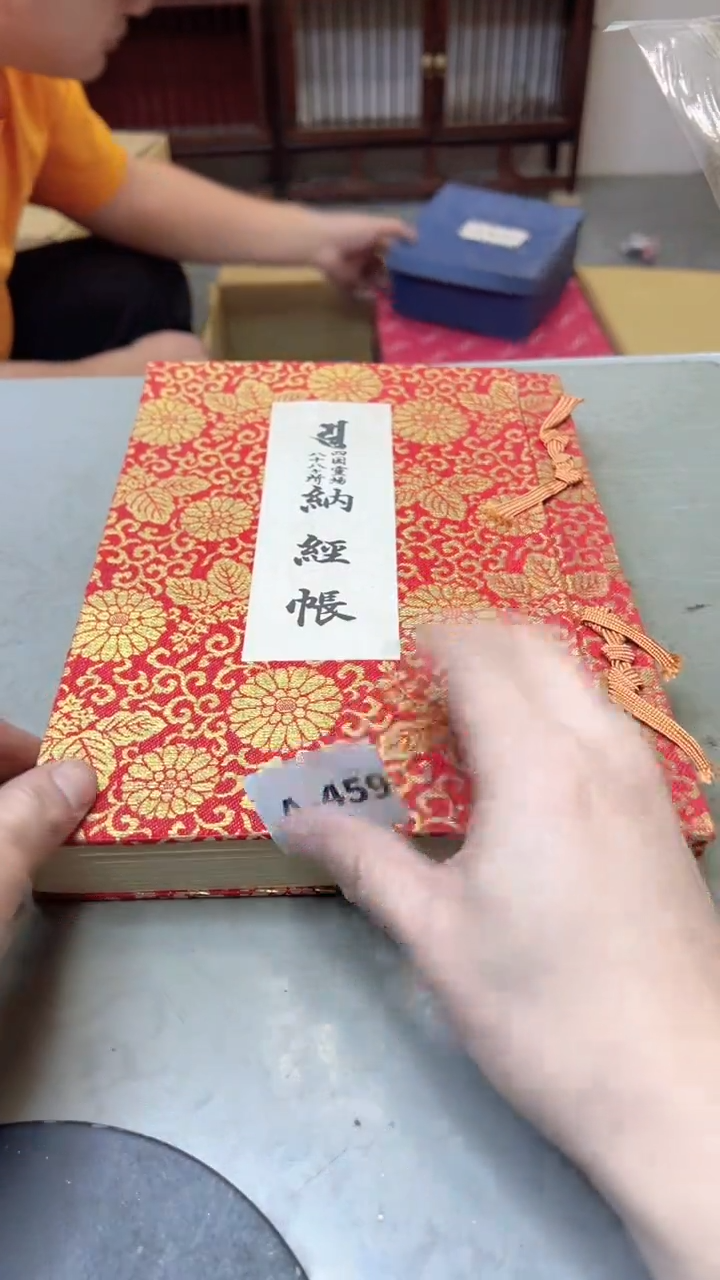 四國靈場
八十八ヶ所
納經帳
A 459